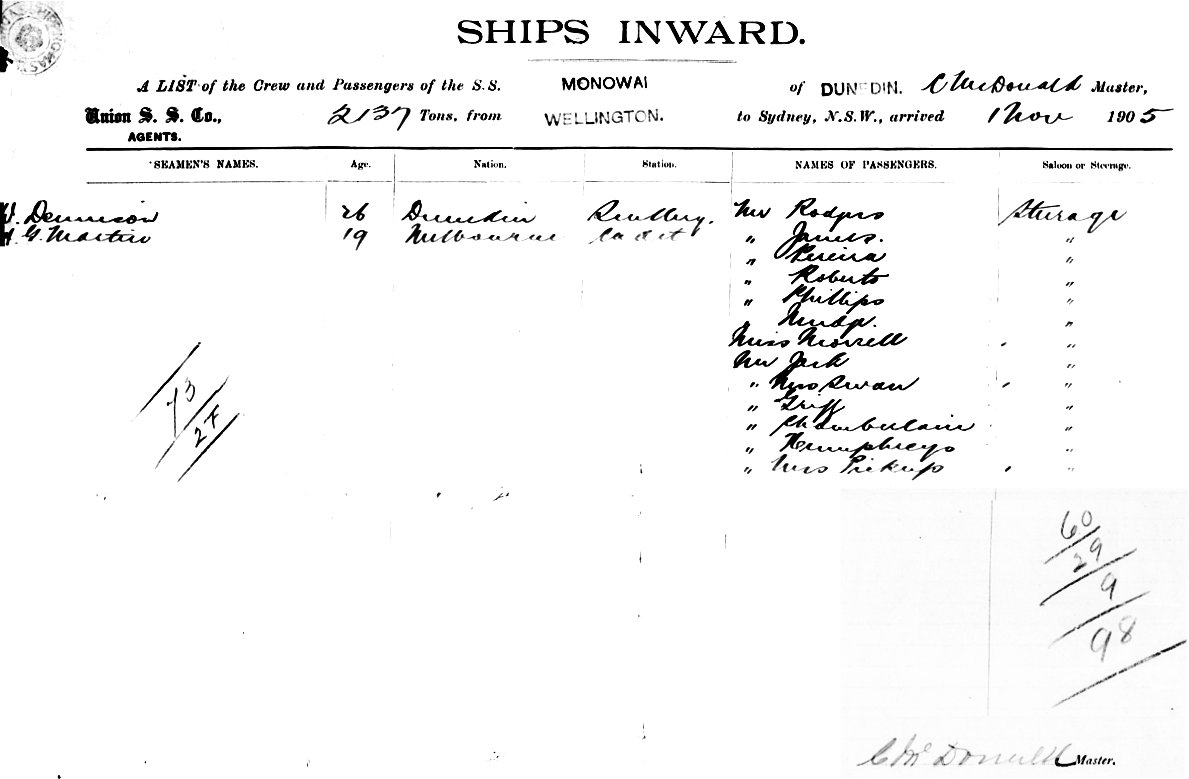 SHIPS INWARD.
A LIST of the Crew and Passengers of the S.S. MONOWAI of DUNEDIN. C McDonald Master,
Union S. S. Co., 2137 Tons, from WELLINGTON. to Sydney, N.S.W., arrived 1 Nov 1905
AGENTS.
SEAMEN'S NAMES. Age. Nation. Station. NAMES OF PASSENGERS. Saloon or Steerage.
Dennison 26 Dunedin Mr Rodgers Steerage
G. Martin 19 Melbourne Cadet " James. "
" Pereira "
" Roberts "
" Phillips "
" "
Miss Morrell "
Mr Jack "
" Mrs Swan "
" Griff "
" Chamberlain "
" Humphreys "
" Mrs Pickup "
73
27
60
29
9
98
C McDonald Master.